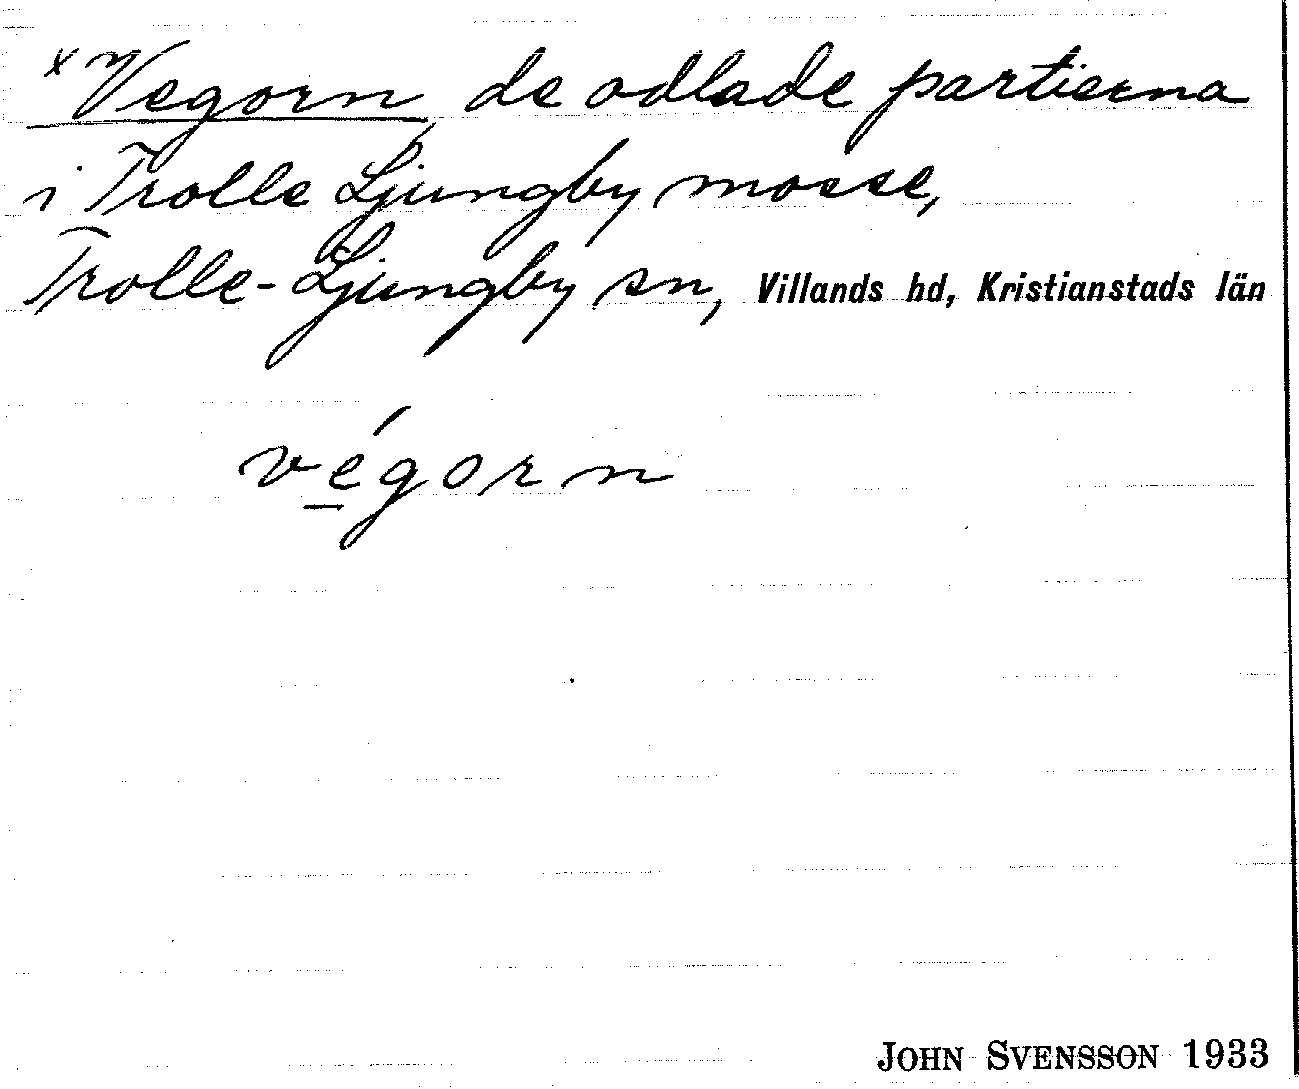 x Vegorn, de odlade partierna
i Trolle Ljungby mosse,
Trolle-Ljungby sn, Villands hd, Kristianstads län
végorn
JOHN SVENSSON 1933